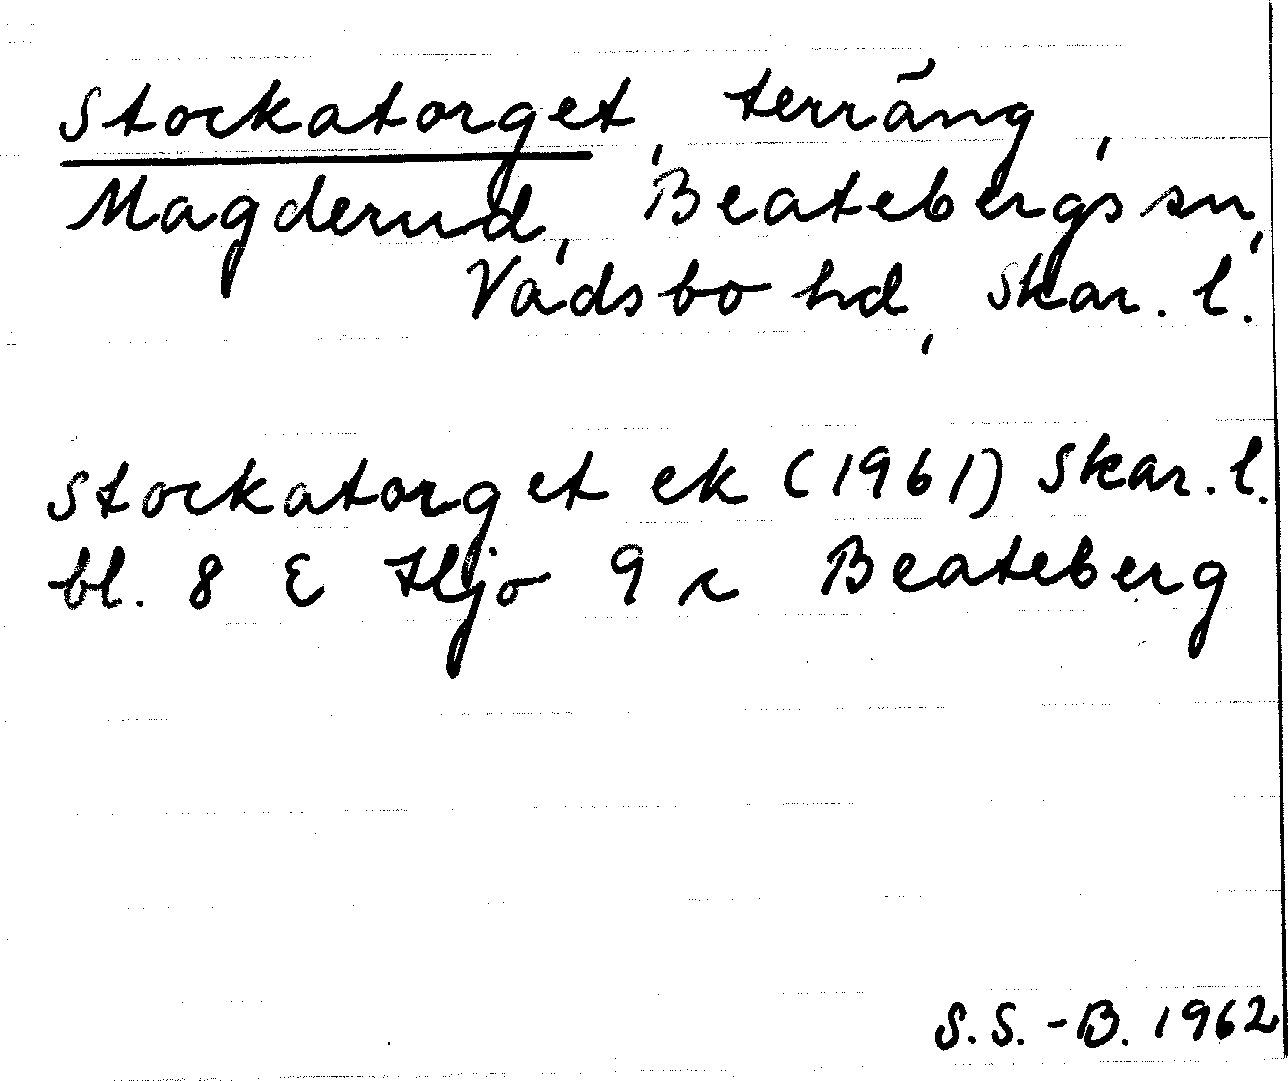 Stockatorget, terräng,
Magderud, Beatebergs sn,
Vadsbo hd, Skar. l.
Stockatorget ek (1961) Skar. l.
bl. 8 E Hjo 9 c Beateberg
S.S.-B. 1962